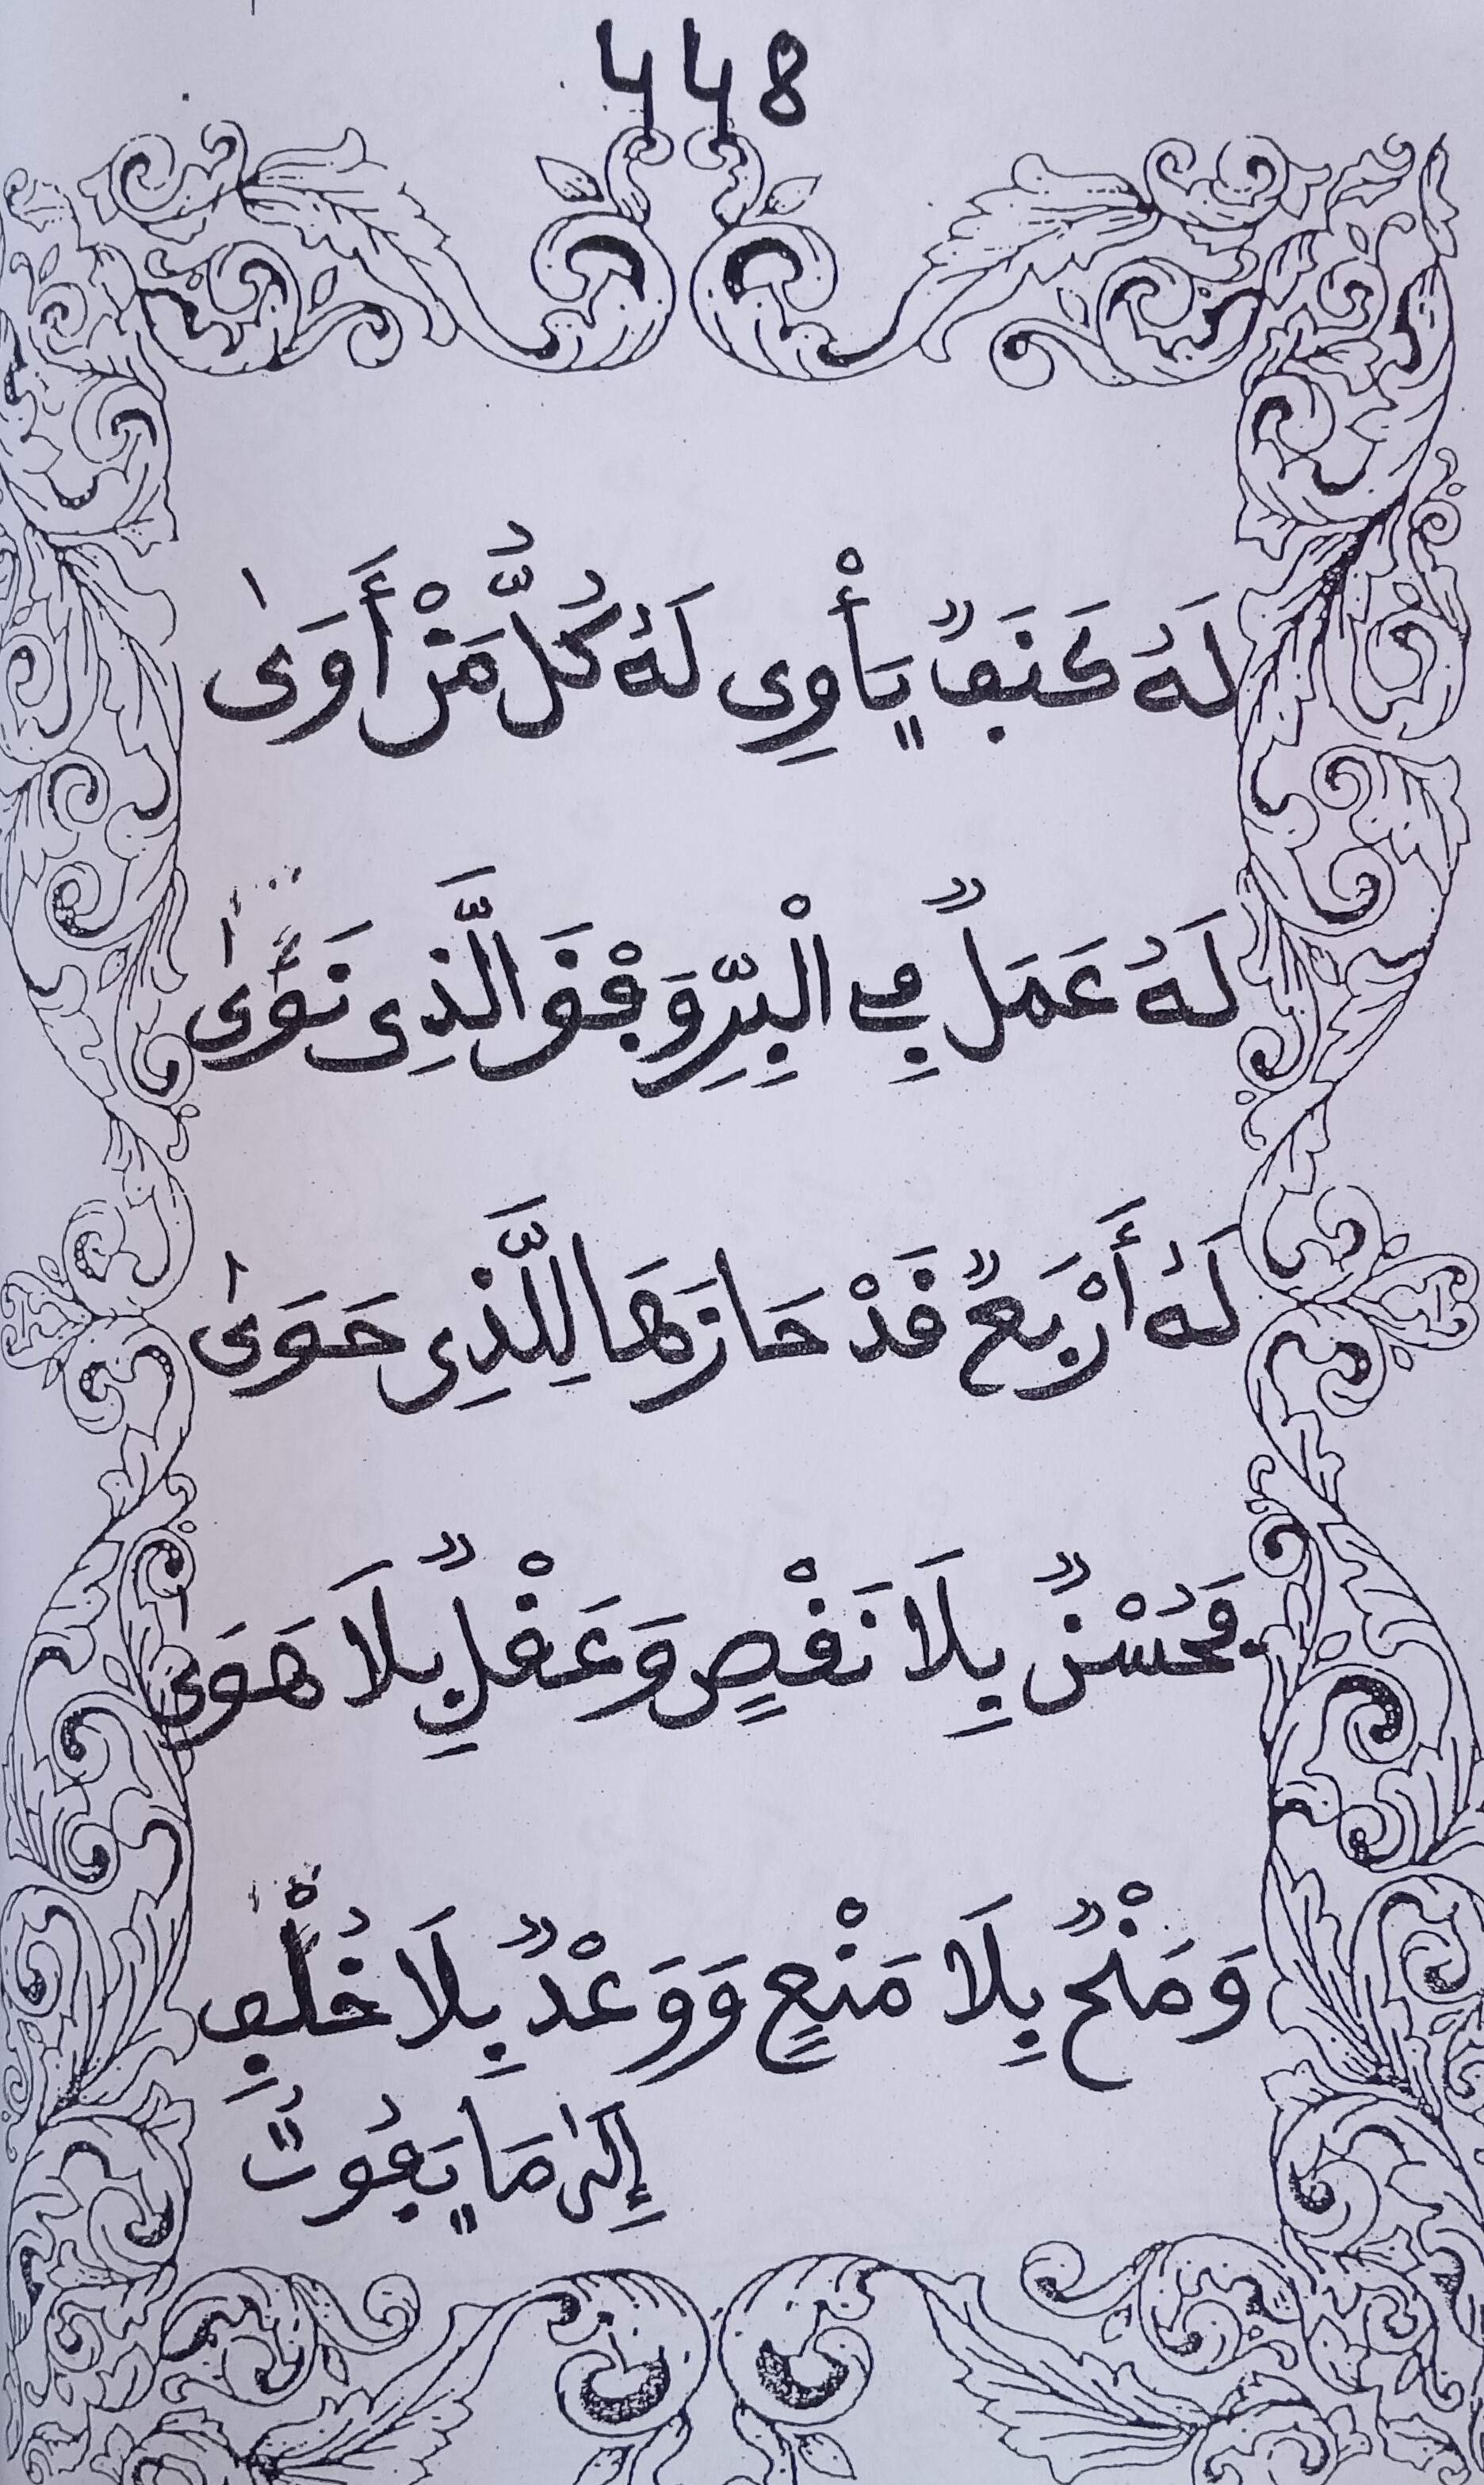 448
لَهُ كَنَفٌ يَأْوِى لَهُ كُلُّ مَنْ أَوَىٰ
لَهُ عَمَلٌ فِى الْبِرِّ وَفْقَ الَّذِى نَوَىٰ
لَهُ أَرْبَعٌ قَدْ حَازَهَا لِلَّذِى حَوَىٰ
فَحُسْنٌ بِلَا نَقْصٍ وَعَقْلٌ بِلَا هَوَى
وَمَنْحٌ بِلَا مَنْعٍ وَوَعْدٌ بِلَا خُلْفِ
إِلَىٰ مَا يَفُوتُ